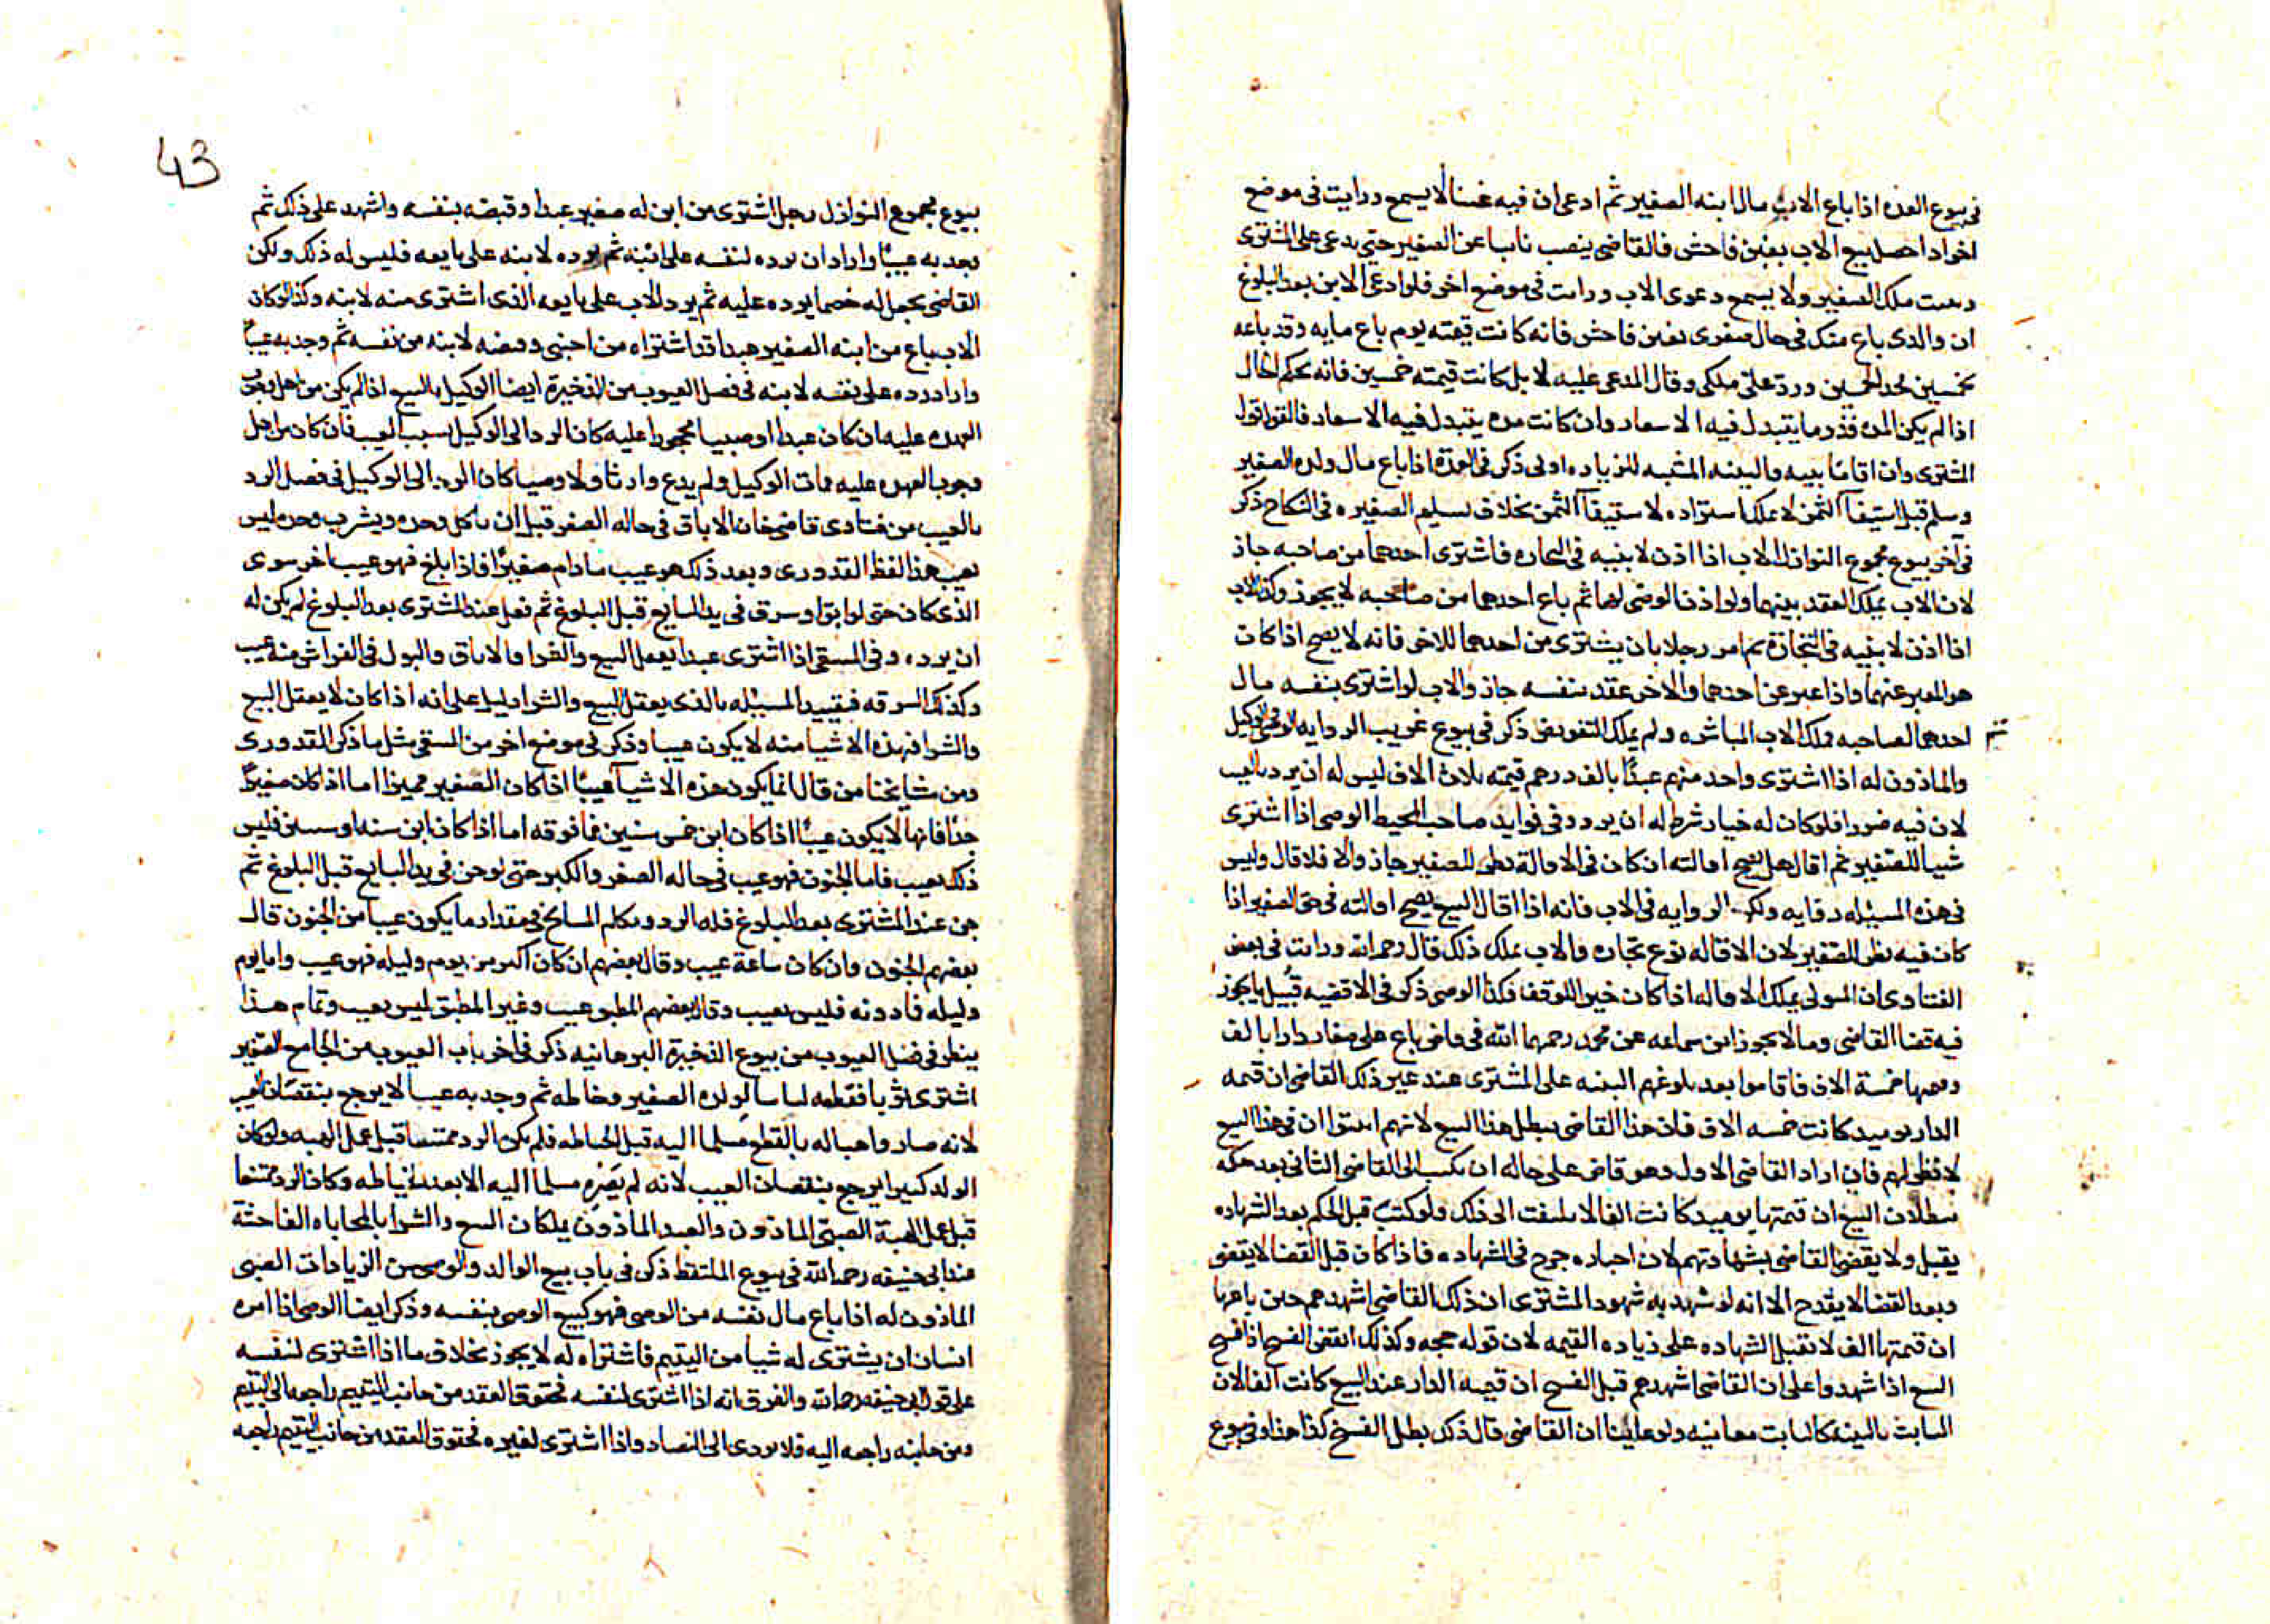 في بيوع العده اذا باع الاب مال ابنه الصغير ثم ادعى ان فيه غبنا لا يسمع ورايت في موضع
اخر اذا حصل بيع الاب بغبن فاحش فالقاضي ينصب نايبا عن الصغير حتى يدعى على المشترى
ملك الصغير ولا يسمع دعوى الاب ورايت في موضع اخر فلو ادعى الابن بعد البلوغ
ان والدى باع منك في حال صغرى بغبن فاحش فانه كانت قيمته يوم باع مايه وقد باعه
بخمسين ورد على ملكى وقال المدعى عليه لا بل كانت قيمته خمسين فانه يحكم الحال
اذا لم يكن المده قدر ما يتبدل فيه الاسعار وان كانت مده يتبدل فيه الاسعار فالقول قول
المشترى وان اقاما بينه فالبينه المثبته للزياده اولى ذكر في العدة اذا باع مال ولده الصغير
وسلم قبل استيفآ الثمن لا يملك استرداده لاستيفآ الثمن بخلاف تسليم الصغيره في النكاح ذكر
في آخر بيوع مجموع النوازل الاب اذا اذن لابنيه في التجاره فاشترى احدهما من صاحبه جاز
لان الاب يملك العقد بينهما ولو اذن الوصى لهما ثم باع احدهما من صاحبه لا يجوز وكذا الاب
اذا اذن لابنيه في التجارة ثم امر رجلا بان يشترى من احدهما للاخر فانه لا يصح اذا كان
هو المعبر عنهما واذا عبر عن احدهما والاخر عقد بنفسه جاز والاب لو اشترى بنفسه مال
احدهما لصاحبه ملك الاب المباشره ولم يملك التفويض ذكر في بيوع غريب الروايه الوصى والوكيل
والماذون له اذا اشترى واحد منهم عبدًا بالف درهم قيمته ثلاث الاف ليس له ان يرد بالعيب
لان فيه ضررا فلو كان له خيار شرط له ان يرد وفي فوايد صاحب المحيط الوصى اذا اشترى
شيا للصغير ثم اقال هل يصح اقالته ان كان في الاقالة نظر للصغير جاز والا فلا قال وليس
في هذه المسيله روايه ولكن الروايه في الاب فانه اذا اقال البيع يصح اقالته في حق الصغير اذا
كان فيه نظر للصغير لان الاقاله نوع تجاره والاب يملك ذلك قال رحمه الله ورايت في بعض
الفتاوى ان المتولى يملك الاقاله اذا كان خيرا للوقف فكذا الوصى ذكر في الاقضيه قبيل ما يجوز
فيه قضا القاضى وما لا يجوز ابن سماعه عن محمد رحمهما الله في قاضى باع على صغار دارا بالف
وقيمتها خمسة الاف فاقاموا بعد بلوغهم البينه على المشترى عند غير ذلك القاضى ان قيمه
الدار يوميد كانت خمسه الاف فان هذا القاضى يبطل هذا البيع لانهم اثبتوا ان في هذا البيع
لا نظر لهم فان اراد القاضى الاول وهو قاضى على حاله ان يكتب الى القاضى الثانى بعد حكمه
ببطلان البيع ان قيمتها يوميد كانت الفا لا يلتفت الى ذلك ولو كتب قبل الحكم بعد الشهاده
يقبل ولا يقضى القاضى بشهادتهم لان اخباره جرح في الشهاده فاذا كان قبل القضا لا يقضى
وبعد القضا لا يقدح الا انه لو شهد به شهود المشترى ان ذلك القاضى اشهدهم حين باعها
ان قيمتها الف لا تقبل الشهاده على زياده القيمه لان قوله حجه وكذلك انتقض الفسح اذا فسح
البيع اذا شهدوا على ان القاضى اشهدهم قبل الفسح ان قيمه الدار عند البيع كانت الفا لان
الثابت بالبينه كالثابت معاينه ولو عاينا ان القاضى قال ذلك بطل الفسخ كذا هنا وفي بيوع
43
بيوع مجموع النوازل رجل اشترى من ابن له صغير عبدا وقبضه بنفسه واشهد على ذلك ثم
وجد به عيبًا واراد ان يرده لنفسه على ابنه ثم يرده لابنه على بايعه فليس له ذلك ولكن
القاضى يجعل له خصما يرده عليه ثم يرد الاب على بايعه الذى اشترى منه لابنه وكذا لو كان
الاب باع من ابنه الصغير عبدا قد اشتراه من اجنبى وقبضه لابنه من نفسه ثم وجد به عيبًا
واراد رده على نفسه لابنه في فصل العيوب من الذخيرة ايضا الوكيل بالبيع اذا لم يكن من اهل وجوب
العهده عليه بان كان عبدا او صبيا محجورا عليه كان الرد الى الوكيل بسبب العيب فان كان من اهل
وجوب العهده عليه فمات الوكيل ولم يدع وارثا ولا وصيا كان الرد الى الوكيل في فصل الرد
بالعيب من فتاوى قاضى خان الاباق في حاله الصغر قبل ان ياكل وحده ويشرب وحده ليس
بعيب هذا لفظ القدورى وبعد ذلك هو عيب ما دام صغيرًا فاذا بلغ فهو عيب اخر سوى
الذى كان حتى لو ابق او سرق في يد البايع قبل البلوغ ثم فعل عند المشترى بعد البلوغ لم يكن له
ان يرده وفي المنتقى اذا اشترى عبدا يعقل البيع والشرا والاباق والبول في الفراش منه عيب
وكذلك السرقه فتقييد المسيله بالذى يعقل البيع والشرا دليل على انه اذا كان لا يعقل البيع
والشرا فهذه الاشيا منه لا يكون عيبا وذكر في موضع اخر من المنتقى مثل ما ذكر القدورى
ومن مشايخنا من قال انما يكون هذه الاشيا عيبًا اذا كان الصغير مميزا اما اذا كان صغيرًا
جدًا فانها لا يكون عيبًا اذا كان ابن خمس سنين فما فوقه اما اذا كان ابن سنه او سنتين فليس
ذلك بعيب فاما الجنون فهو عيب في حاله الصغر والكبر حتى لو جن في يد البايع قبل البلوغ ثم
جن عند المشترى بعد البلوغ فله الرد وتكلم المشايخ في مقدار ما يكون عيبا من الجنون قال
بعضهم الجنون وان كان ساعة عيب وقال بعضهم ان كان اكثر من يوم وليله فهو عيب واما يوم
وليله فما دونه فليس بعيب وقال بعضهم المطبق عيب وغير المطبق ليس بعيب وتمام هذا
ينظر في فصل العيوب من بيوع الذخيرة البرهانيه ذكر في اخر باب العيوب من الجامع الصغير
اشترى ثوبا فقطعه لباسا لولده الصغير وخاطه ثم وجد به عيبا لا يرجع بنقصان العيب
لانه صار واهبا له بالقطع مسلما اليه قبل الخياطه فلم يكن الرد ممتنعا قبل عمل الهبه ولو كان
الولد كبيرا يرجع بنقصان العيب لانه لم يصر مسلما اليه الا بعد الخياطه وكان الرد ممتنعا
قبل عمل الهبة الصبى الماذون والعبد الماذون يملكان البيع والشرا بالمحاباه الفاحشة
عند ابى حنيفه رحمه الله في بيوع الملتقط ذكر في باب بيع الوالد والوصى من الزيادات الصبى
الماذون له اذا باع مال نفسه من الوصى فهو كبيع الوصى بنفسه وذكر ايضا الوصى اذا امره
انسان ان يشترى له شيا من اليتيم فاشتراه له لا يجوز بخلاف ما اذا اشترى لنفسه
على قول ابى حنيفه رحمه الله والفرق انه اذا اشترى لنفسه فحقوق العقد من جانب اليتيم راجعه الى اليتيم
ومن جانبه راجعه اليه فلا يودى الى التضاد واذا اشترى لغيره فحقوق العقد من جانب اليتيم راجعه